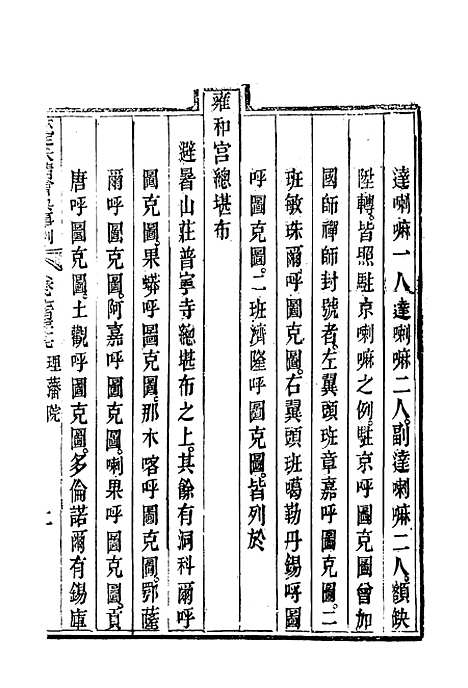 達喇嘛一人達喇嘛二人。副達喇嘛二人。額缺
陞轉。皆照駐京喇嘛之例。駐京呼圖克圖曾加
國師禪師封號者。左翼頭班章嘉呼圖克圖。二
班敏珠爾呼圖克圖。右翼頭班噶勒丹錫呼圖
呼圖克圖。二班濟隆呼圖克圖。皆列於
雍和宮總堪布
避暑山莊普寧寺總堪布之上。其餘有洞科爾呼
圖克圖。果蟒呼圖克圖。那木喀呼圖克圖。鄂薩
爾呼圖克圖。阿嘉呼圖克圖。喇果呼圖克圖。貢
唐呼圖克圖。土觀呼圖克圖。多倫諾爾有錫庫
理藩院